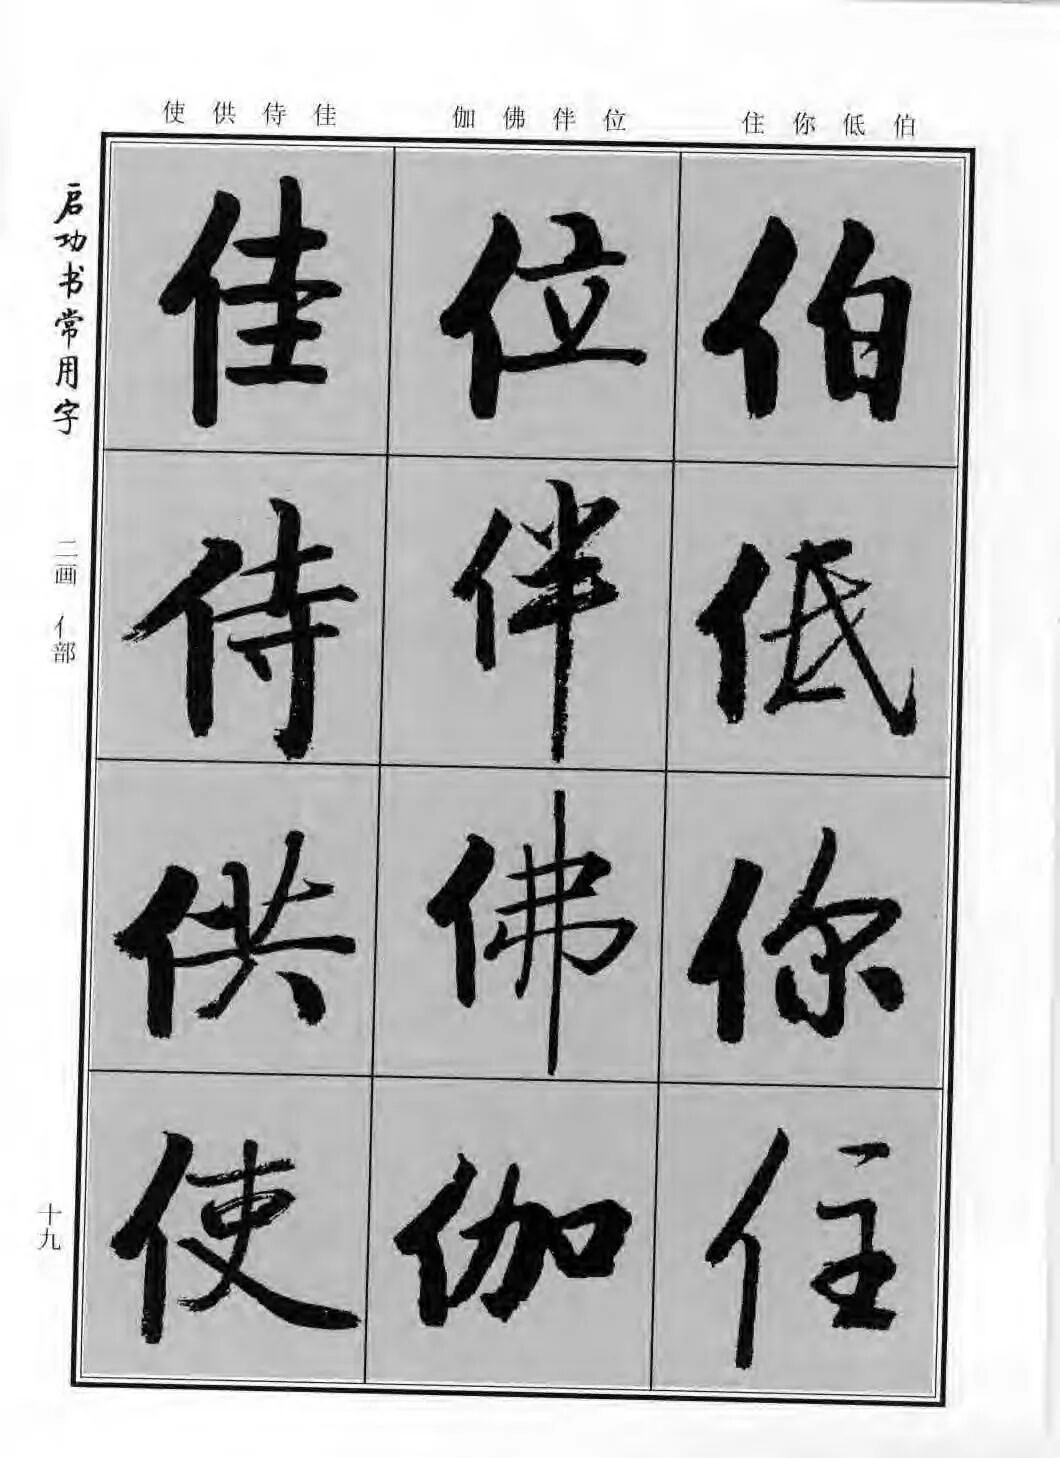 伯低你住
位伴佛伽
佳侍供使
伯
低
你
住
位
伴
佛
伽
佳
侍
供
使
启功书常用字
二画 亻部
十九